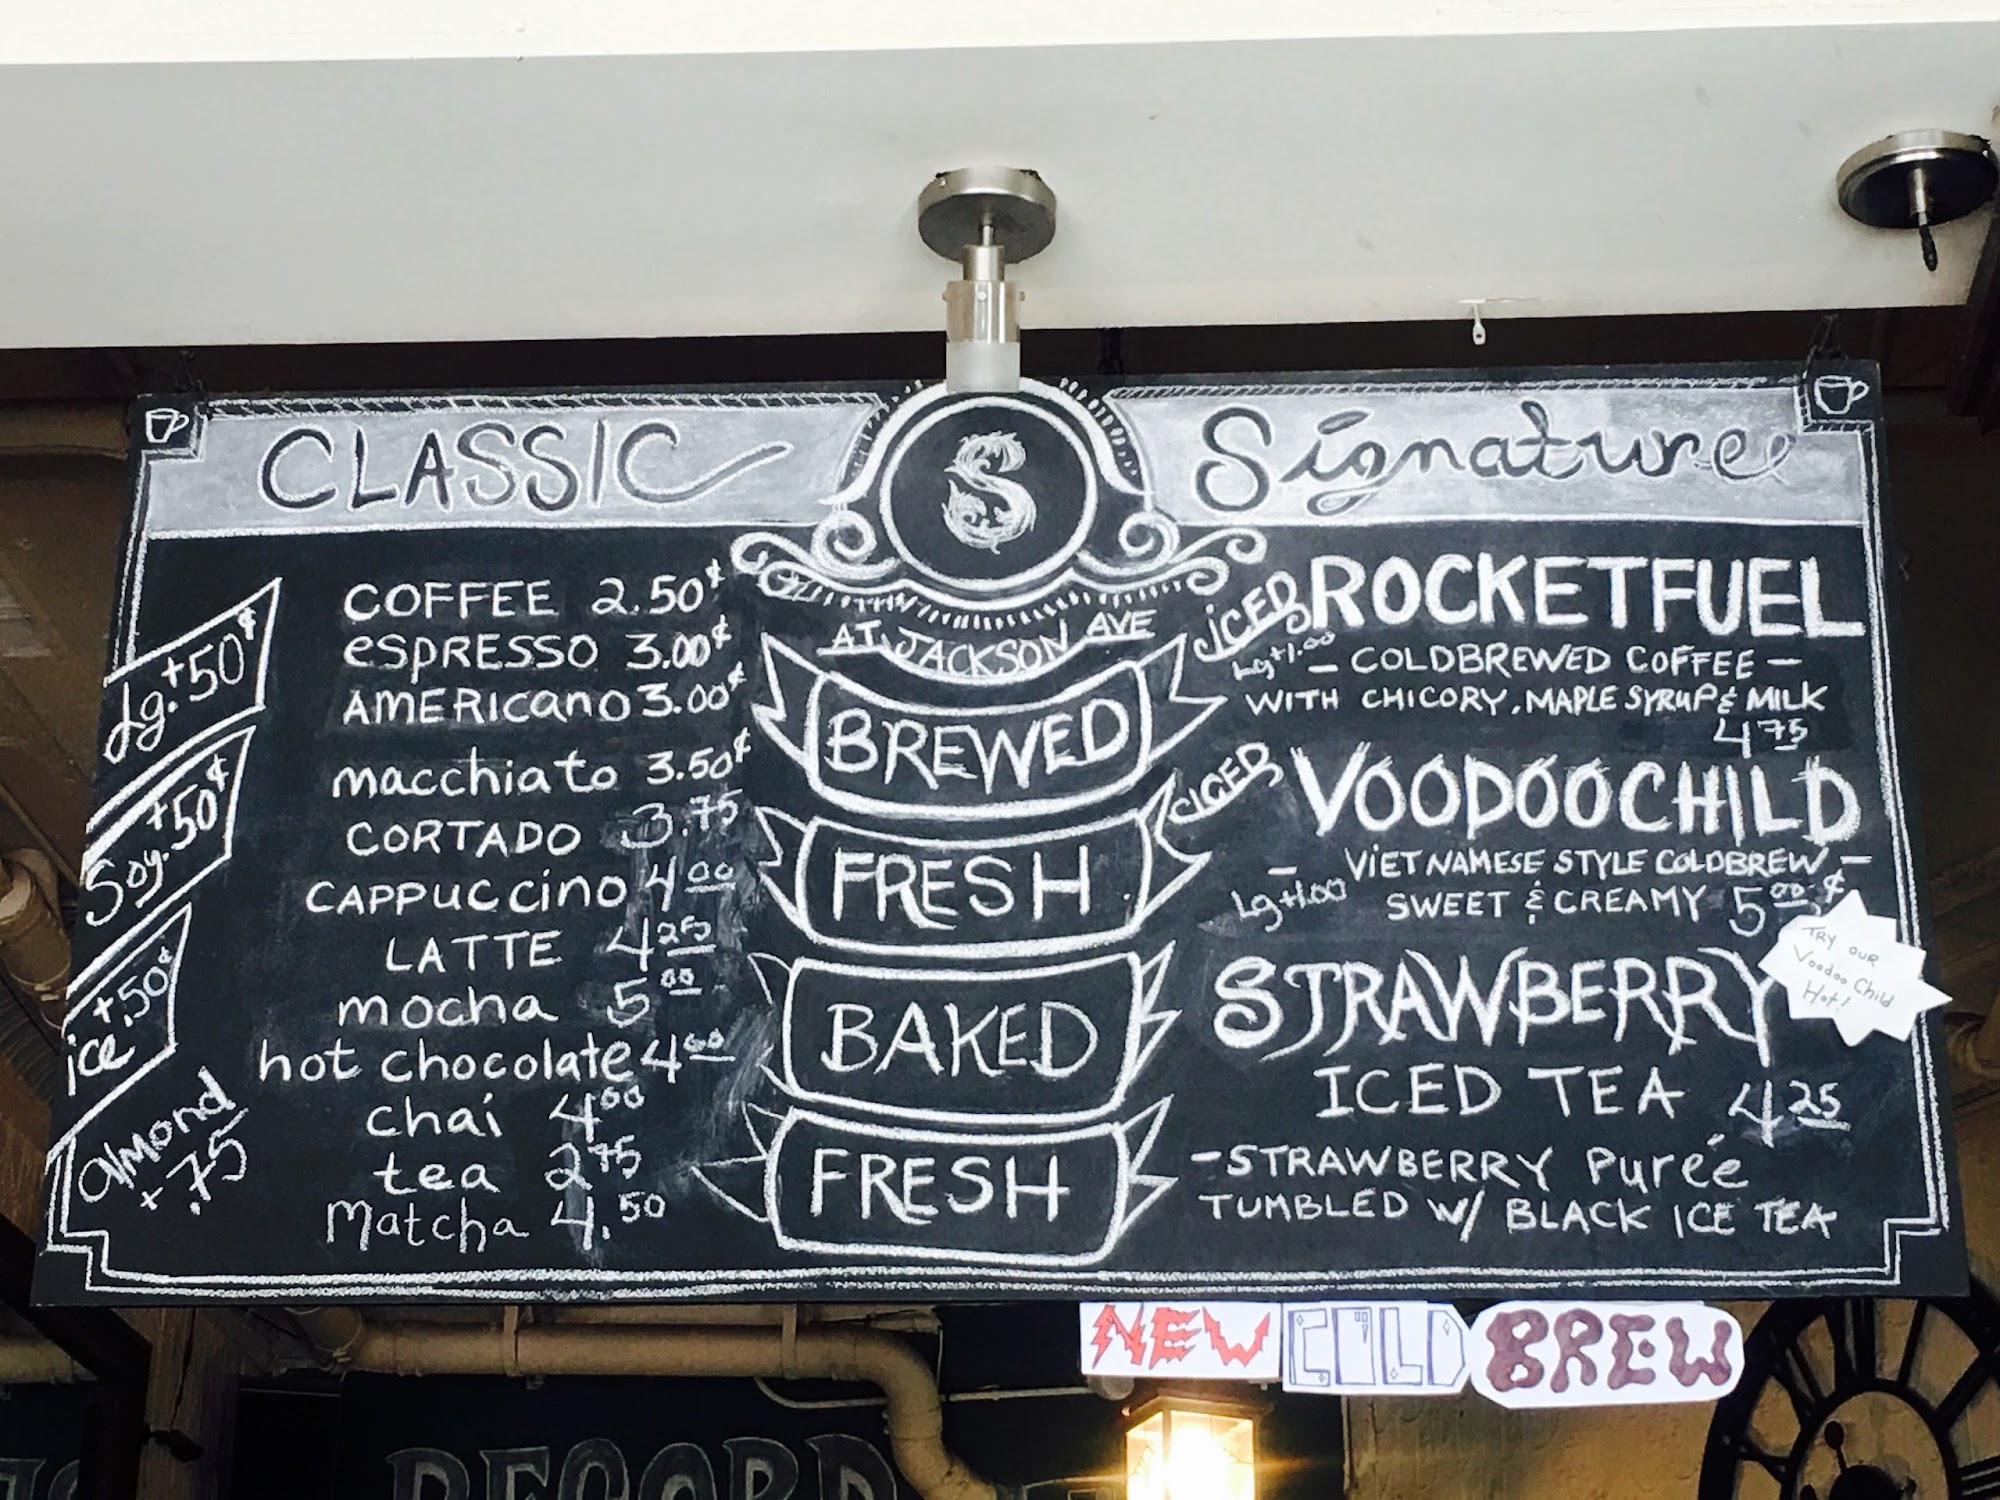 CLASSIC
S
Signature
Lg. +.50¢
Soy. +.50¢
ice +.50¢
almond
+.75
COFFEE 2.50¢
espresso 3.00¢
AMERICANO 3.00¢
macchiato 3.50¢
CORTADO 3.75
CAPPUCCINO 4.00
LATTE 4.25
mocha 5.00
hot chocolate 4.00
chai 4.00
tea 2.75
Matcha 4.50
AT JACKSON AVE
BREWED
FRESH
BAKED
FRESH
ICED ROCKETFUEL
Lg +1.00
- COLDBREWED COFFEE -
WITH CHICORY, MAPLE SYRUP & MILK
4.75
ICED VOODOOCHILD
- VIETNAMESE STYLE COLDBREW -
Lg +1.00
SWEET & CREAMY 5.00¢
TRY OUR
Voodoo Child
Hot!
STRAWBERRY
ICED TEA 4.25
-STRAWBERRY Purée
TUMBLED W/ BLACK ICE TEA
NEW COLD BREW
RECORD